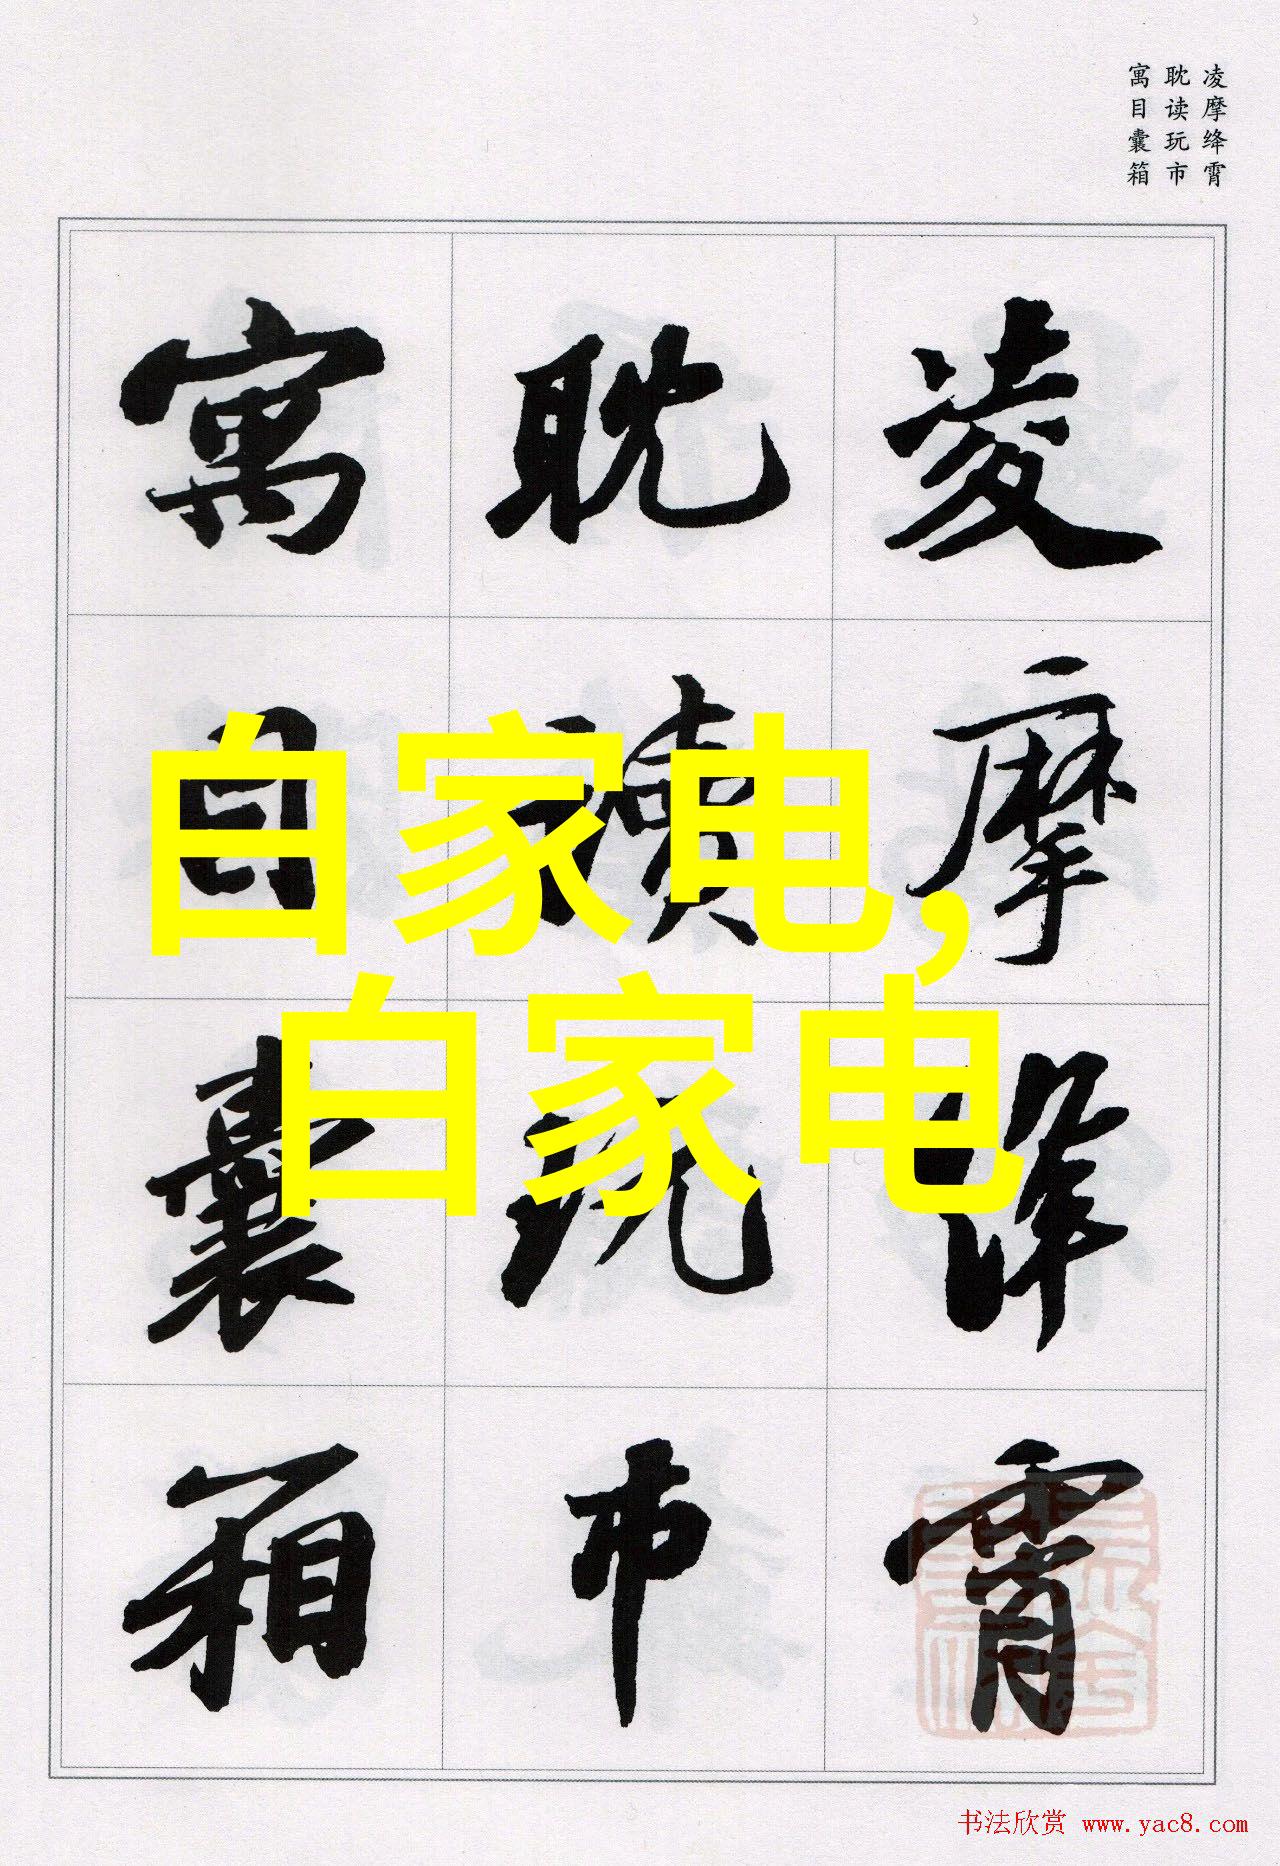 凌摩绛霄
耽读玩市
寓目囊箱
凌摩绛霄
耽读玩市
寓目囊箱
白家电,
白家电
书法欣赏 www.yac8.com